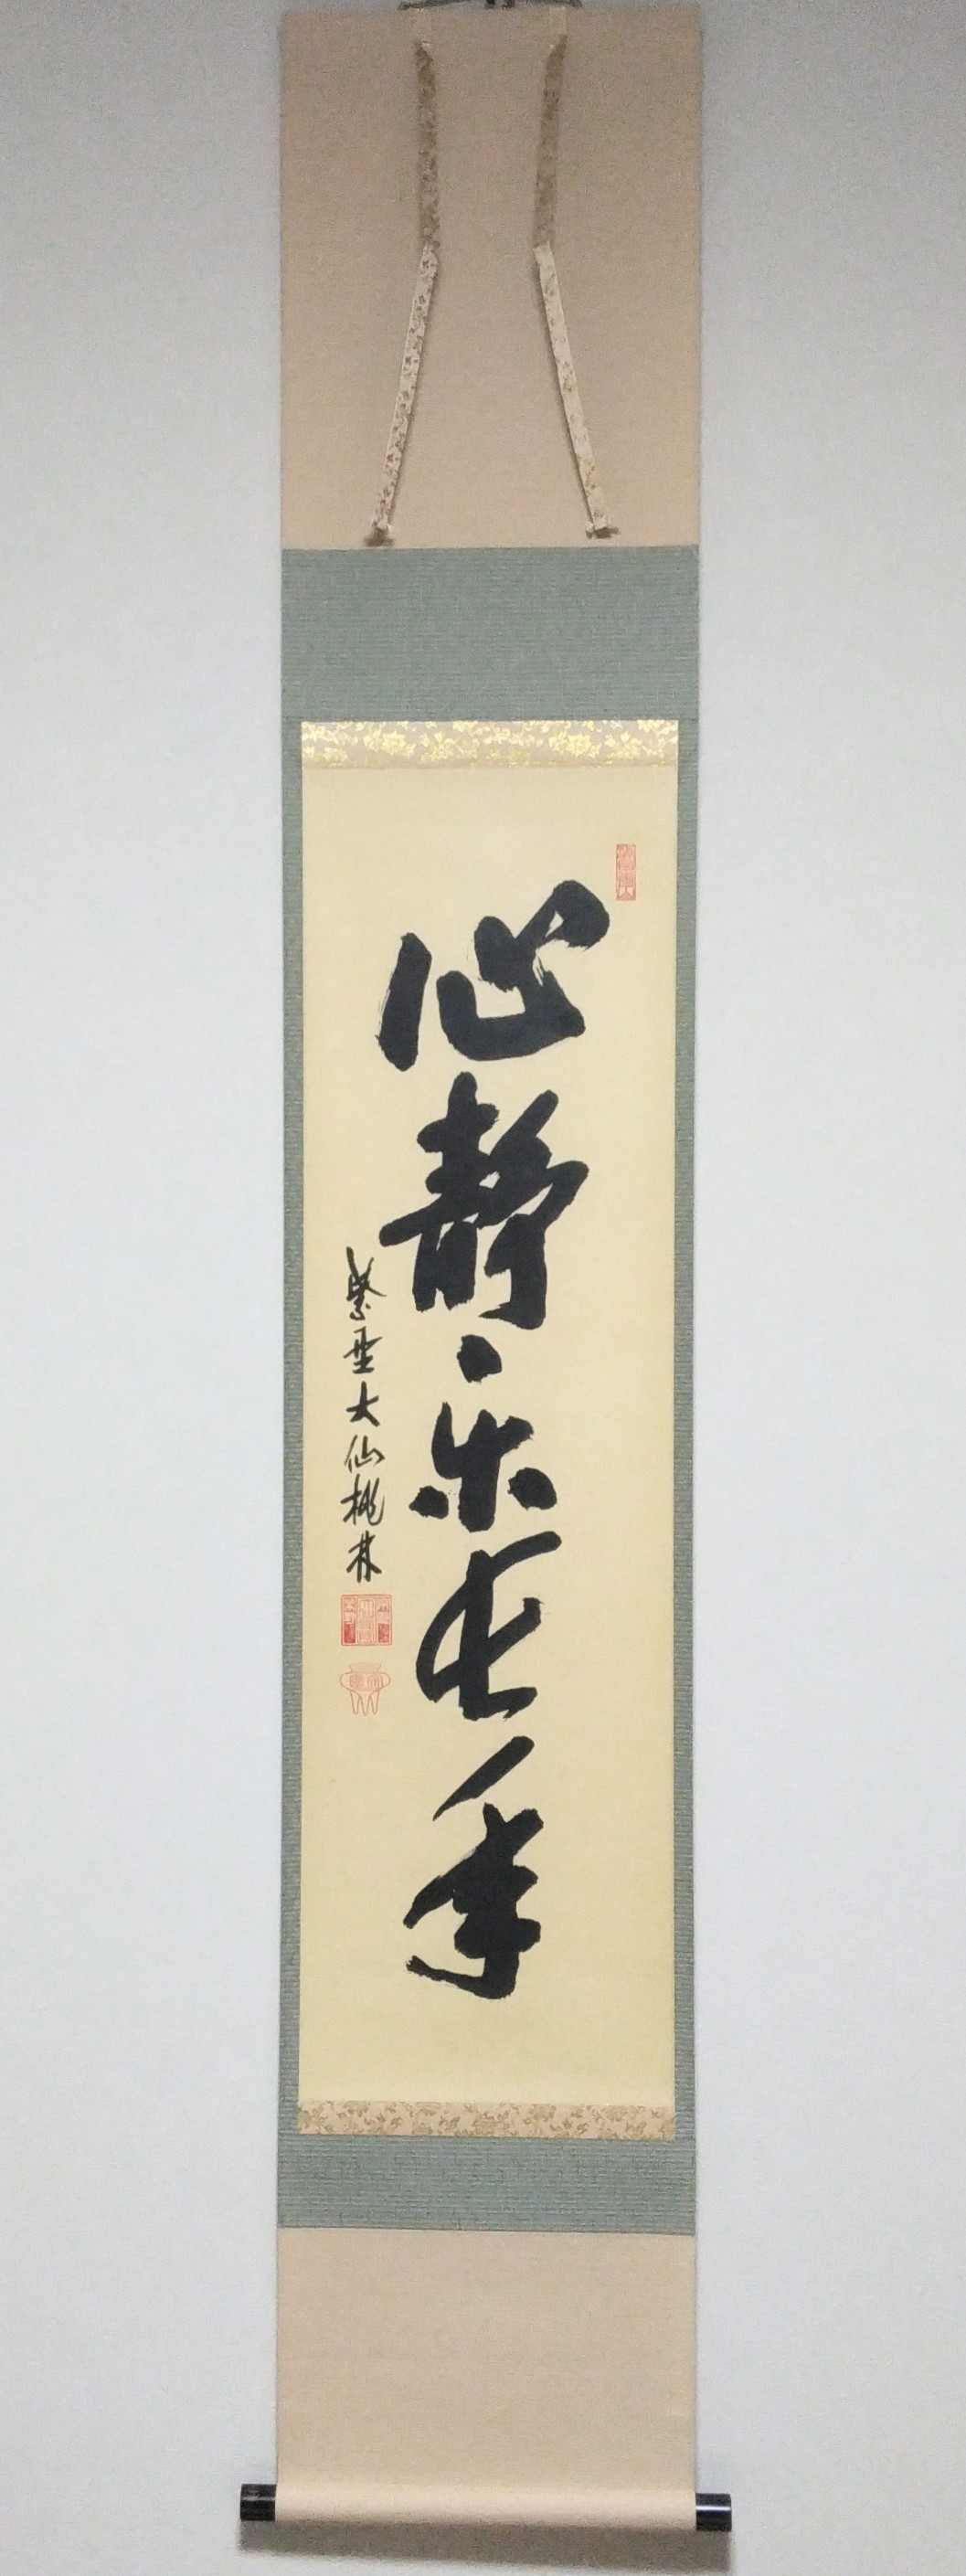 心静楽長年
紫野大仙桃林